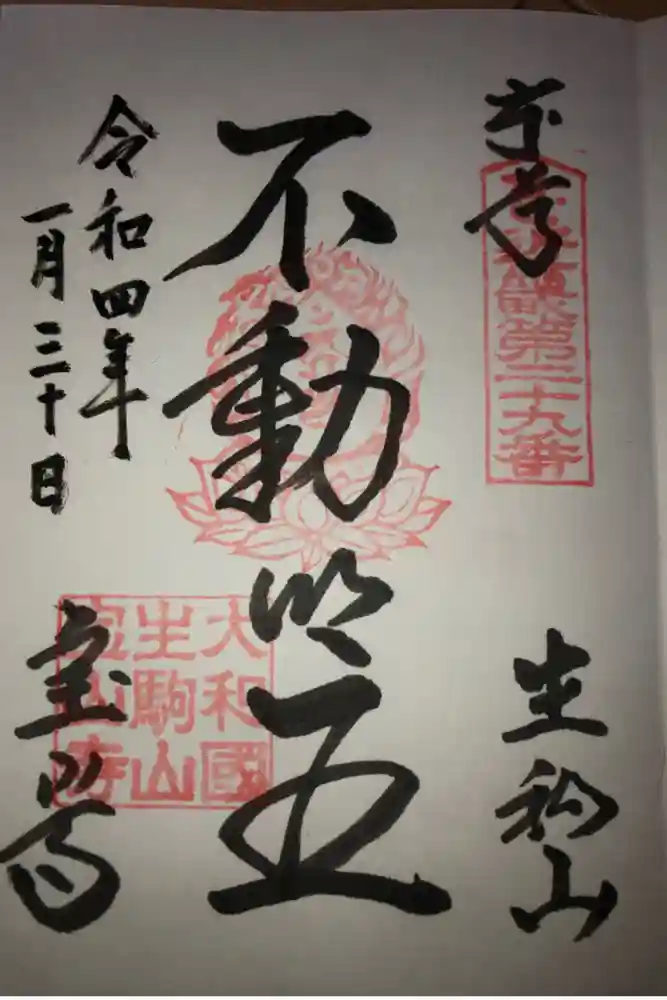 奉拝
第二十九番
生駒山
不動明王
大和國
生駒山
寳山寺
令和四年
一月三十日
宝山寺